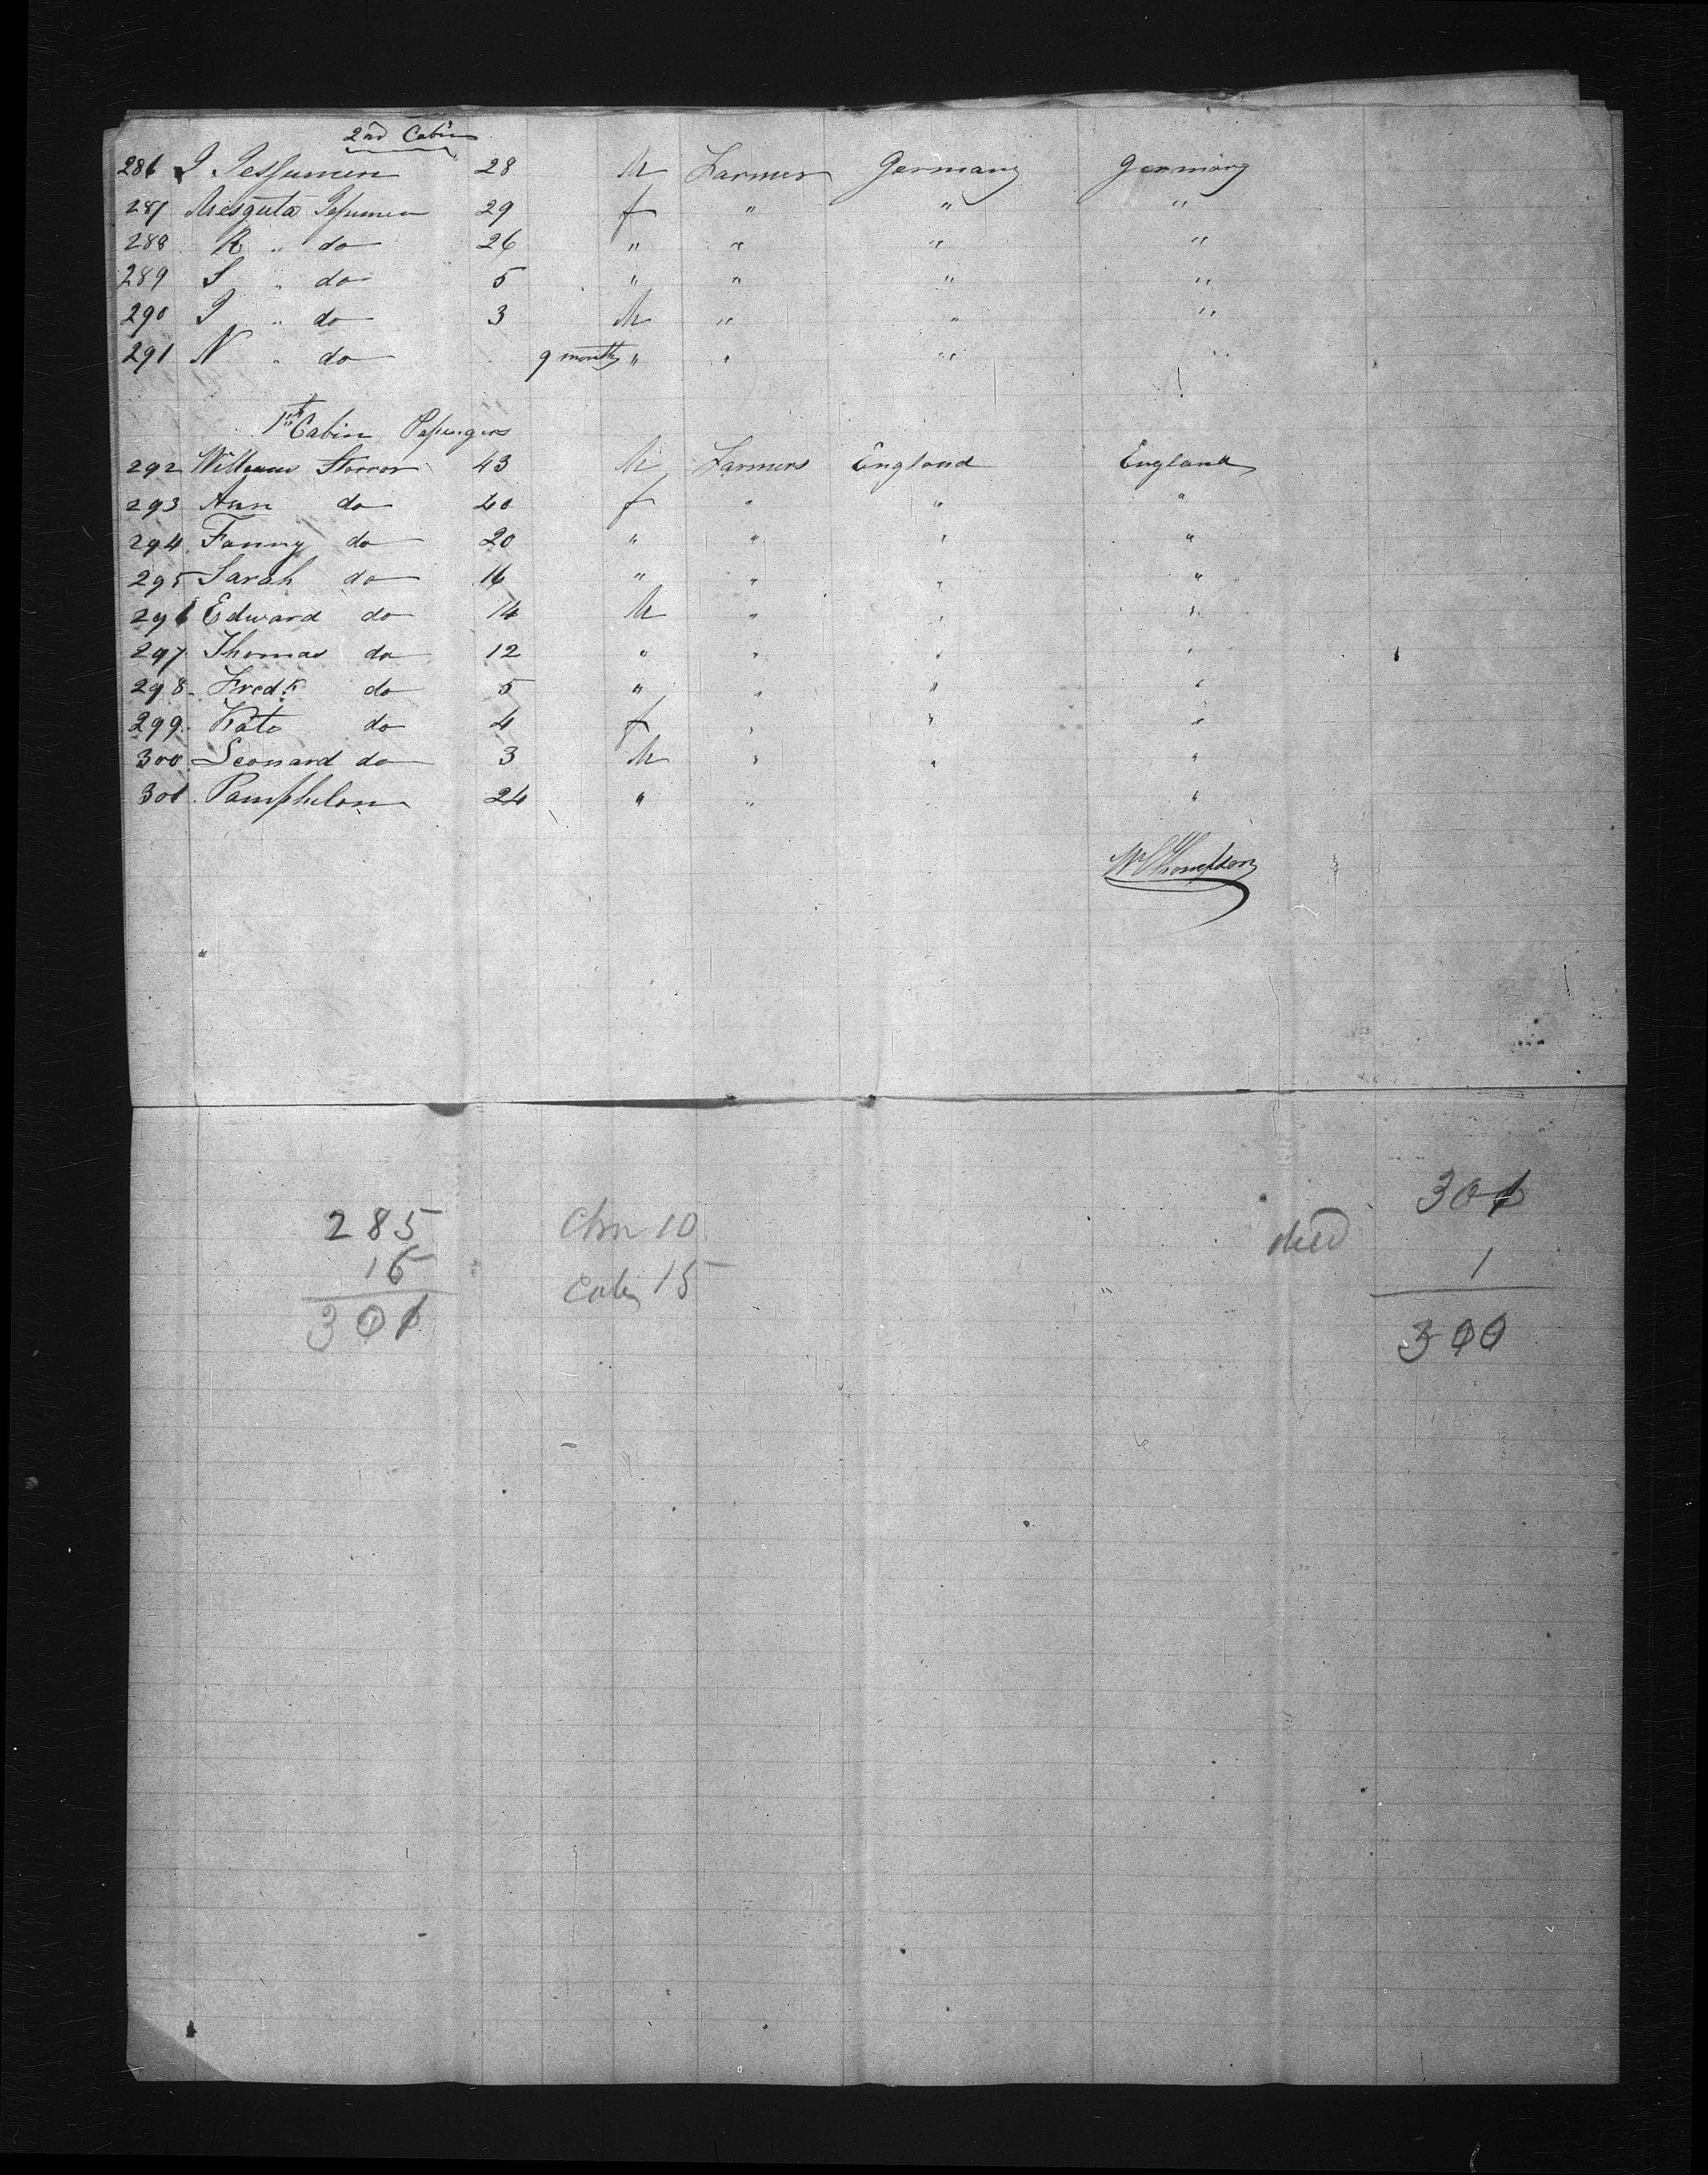 2nd Cabin
286 J Jessumen 28 M Farmer Germany Germany
287 Mesguta Jessumen 29 f " " "
288 R " do 26 " " " "
289 S " do 5 " " " "
290 J " do 3 M " " "
291 N " do 9 months " " " "
1st Cabin Passengers
292 William Storror 43 M Farmers England England
293 Ann do 40 f " " "
294 Fanny do 20 " " " "
295 Sarah do 16 " " " "
296 Edward do 14 M " " "
297 Thomas do 12 " " " "
298 Fredk do 5 " " " "
299 Kate do 4 f " " "
300 Leonard do 3 M " " "
301 Pamphilon 24 " " " "
W Thompson
285 Chn 10 301
16 Cabin 15 died 1
301 300